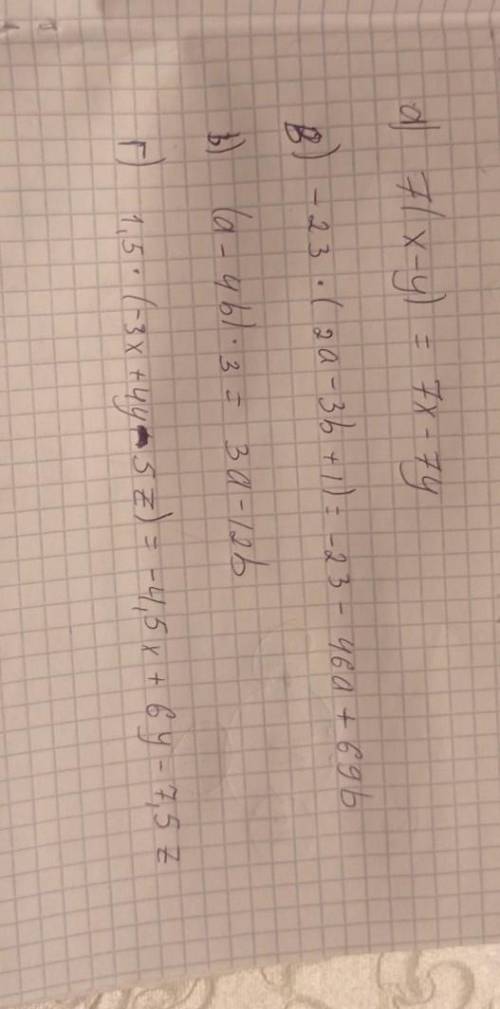 а) 7(x-y) = 7x-7y
в) -23·(2a-3b+1)=-23-46a+69b
б) (a-4b)·3= 3a-12b
г) 1,5·(-3x+4y-5z)=-4,5x+6y-7,5z